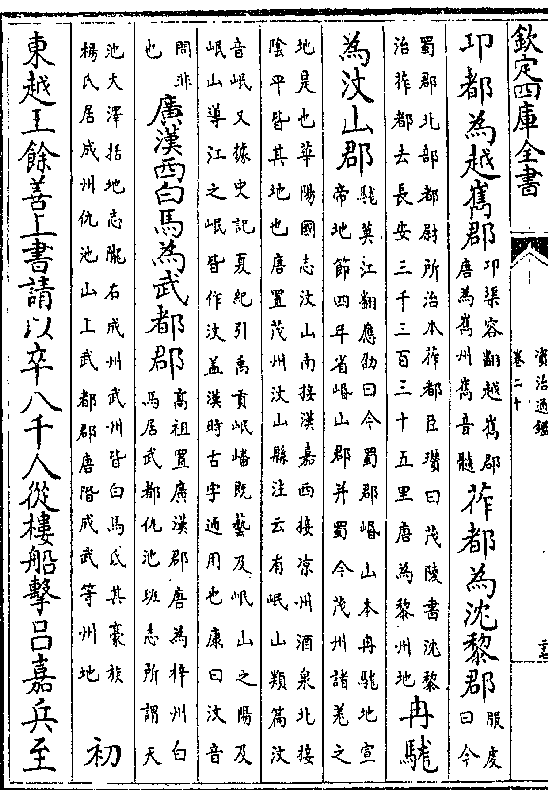 欽定四庫全書
資治通鑑
卷二十
卭都為越嶲郡
卭渠容翻越嶲郡
唐為嶲州嶲音髓
莋都為沈黎郡
服虔
曰今
蜀郡北部都尉所治本莋都臣瓚曰茂陵書沈黎
治莋都去長安三千三百三十五里唐為黎州地
冉駹
為汶山郡
駹莫江翻應劭曰今蜀郡㟭山本冉駹地宣
帝地節四年省㟭山郡并蜀今茂州諸羌之
地是也華陽國志汶山南接漢嘉西接凉州酒泉北接
陰平皆其地也唐置茂州汶山縣注云有岷山類篇汶
音岷又據史記夏紀引禹貢岷嶓既藝及岷山之陽及
岷山導江之岷皆作汶葢漢時古字通用也康曰汶音
問非
也
廣漢西白馬為武都郡
髙祖置廣漢郡唐為梓州白
馬居武都仇池班志所謂天
池大澤括地志隴右成州武州皆白馬氐其豪族
楊氏居成州仇池山上武都郡唐階成武等州地
初
東越王餘善上書請以卒八千人從樓船擊吕嘉兵至